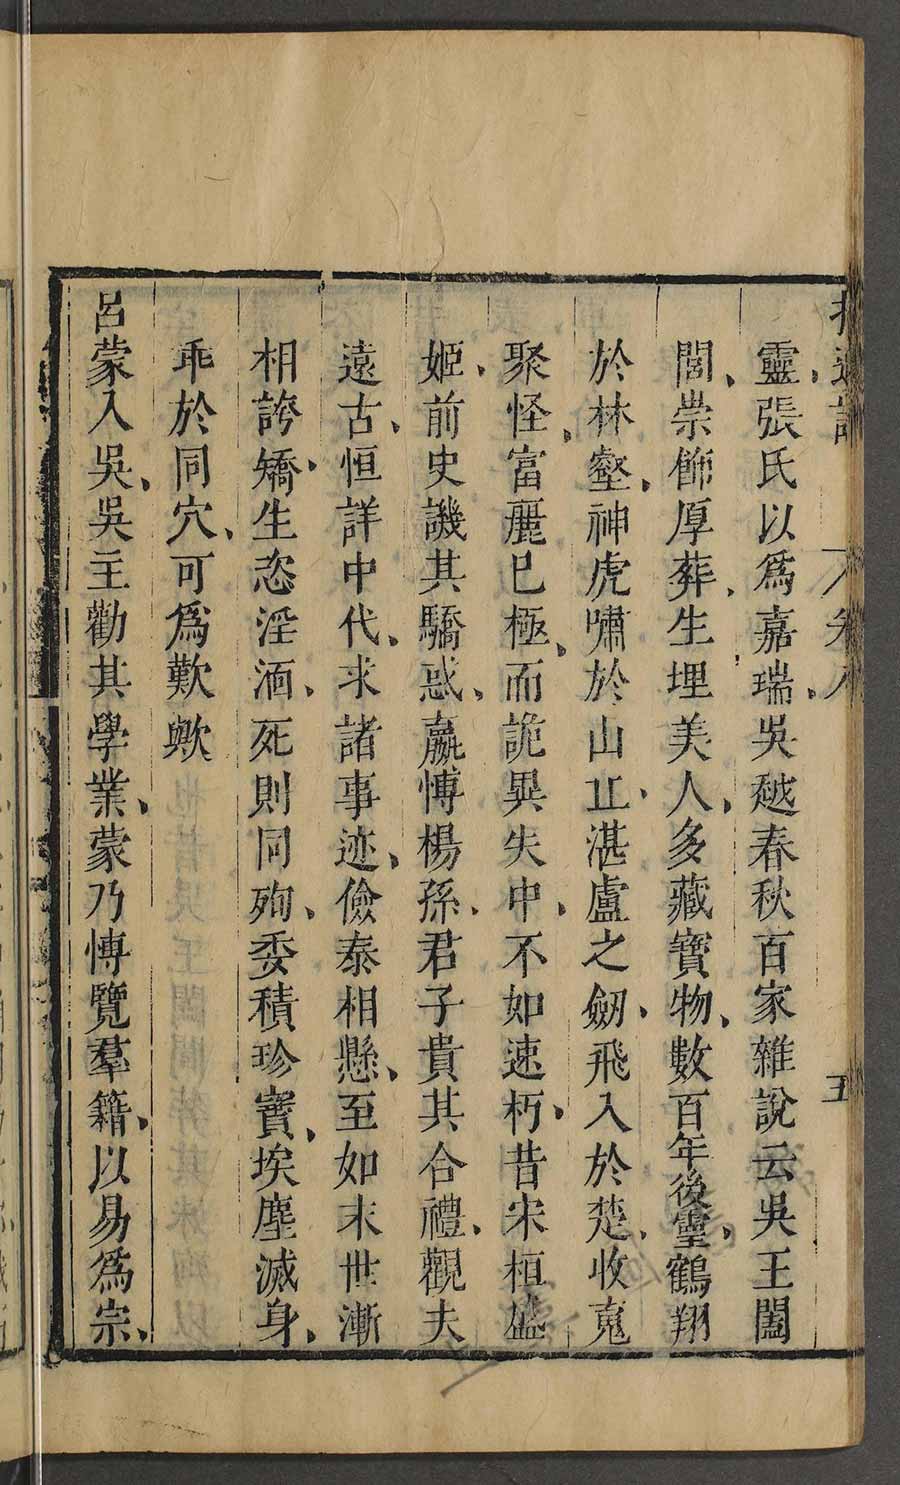 拾遺記 卷八 五
靈、張氏以爲嘉瑞、吳越春秋百家雜說云吳王闔
閭、崇飾厚葬、生埋美人、多藏寶物、數百年後、靈鶴翔
於林壑、神虎嘯於山丘、湛盧之劒、飛入於楚、收䰟
聚怪、富麗已極、而詭異失中、不如速朽、昔宋桓盛
姬、前史譏其驕惑、嬴博楊孫、君子貴其合禮、觀夫
遠古、恒詳中代、求諸事迹、儉泰相懸、至如末世漸
相誇矯、生恣淫湎、死則同殉、委積珍寳、埃塵滅身、
乖於同穴、可爲歎歟
呂蒙入吳、吳主勸其學業、蒙乃博覽羣籍、以易爲宗、